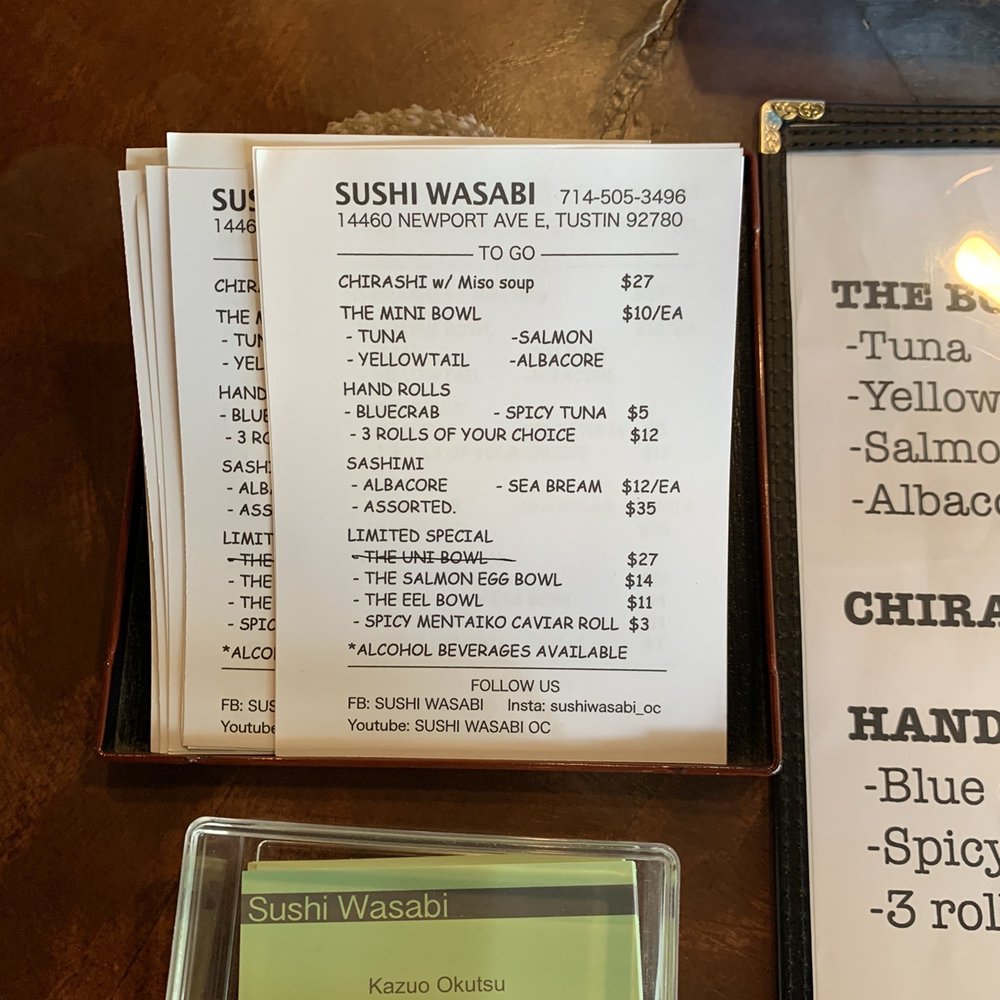 SUSHI WASABI 714-505-3496
14460 NEWPORT AVE E, TUSTIN 92780
TO GO
CHIRASHI w/ Miso soup $27
THE MINI BOWL $10/EA
- TUNA -SALMON
- YELLOWTAIL -ALBACORE
HAND ROLLS
- BLUECRAB - SPICY TUNA $5
- 3 ROLLS OF YOUR CHOICE $12
SASHIMI
- ALBACORE - SEA BREAM $12/EA
- ASSORTED. $35
LIMITED SPECIAL
- THE UNI BOWL $27
- THE SALMON EGG BOWL $14
- THE EEL BOWL $11
- SPICY MENTAIKO CAVIAR ROLL $3
*ALCOHOL BEVERAGES AVAILABLE
FOLLOW US
FB: SUSHI WASABI Insta: sushiwasabi_oc
Youtube: SUSHI WASABI OC
SUS
1446
CHIR
THE
- TUN
- YEL
HAND
- BLUE
- 3 RO
SASH
- ALB
- ASS
LIMIT
- THE
- THE
- THE
- SPIC
*ALCO
FB: SUS
Youtube
THE B
-Tuna
-Yellow
-Salmo
-Albac
CHIRA
HAND
-Blue
-Spicy
-3 rol
Sushi Wasabi
Kazuo Okutsu